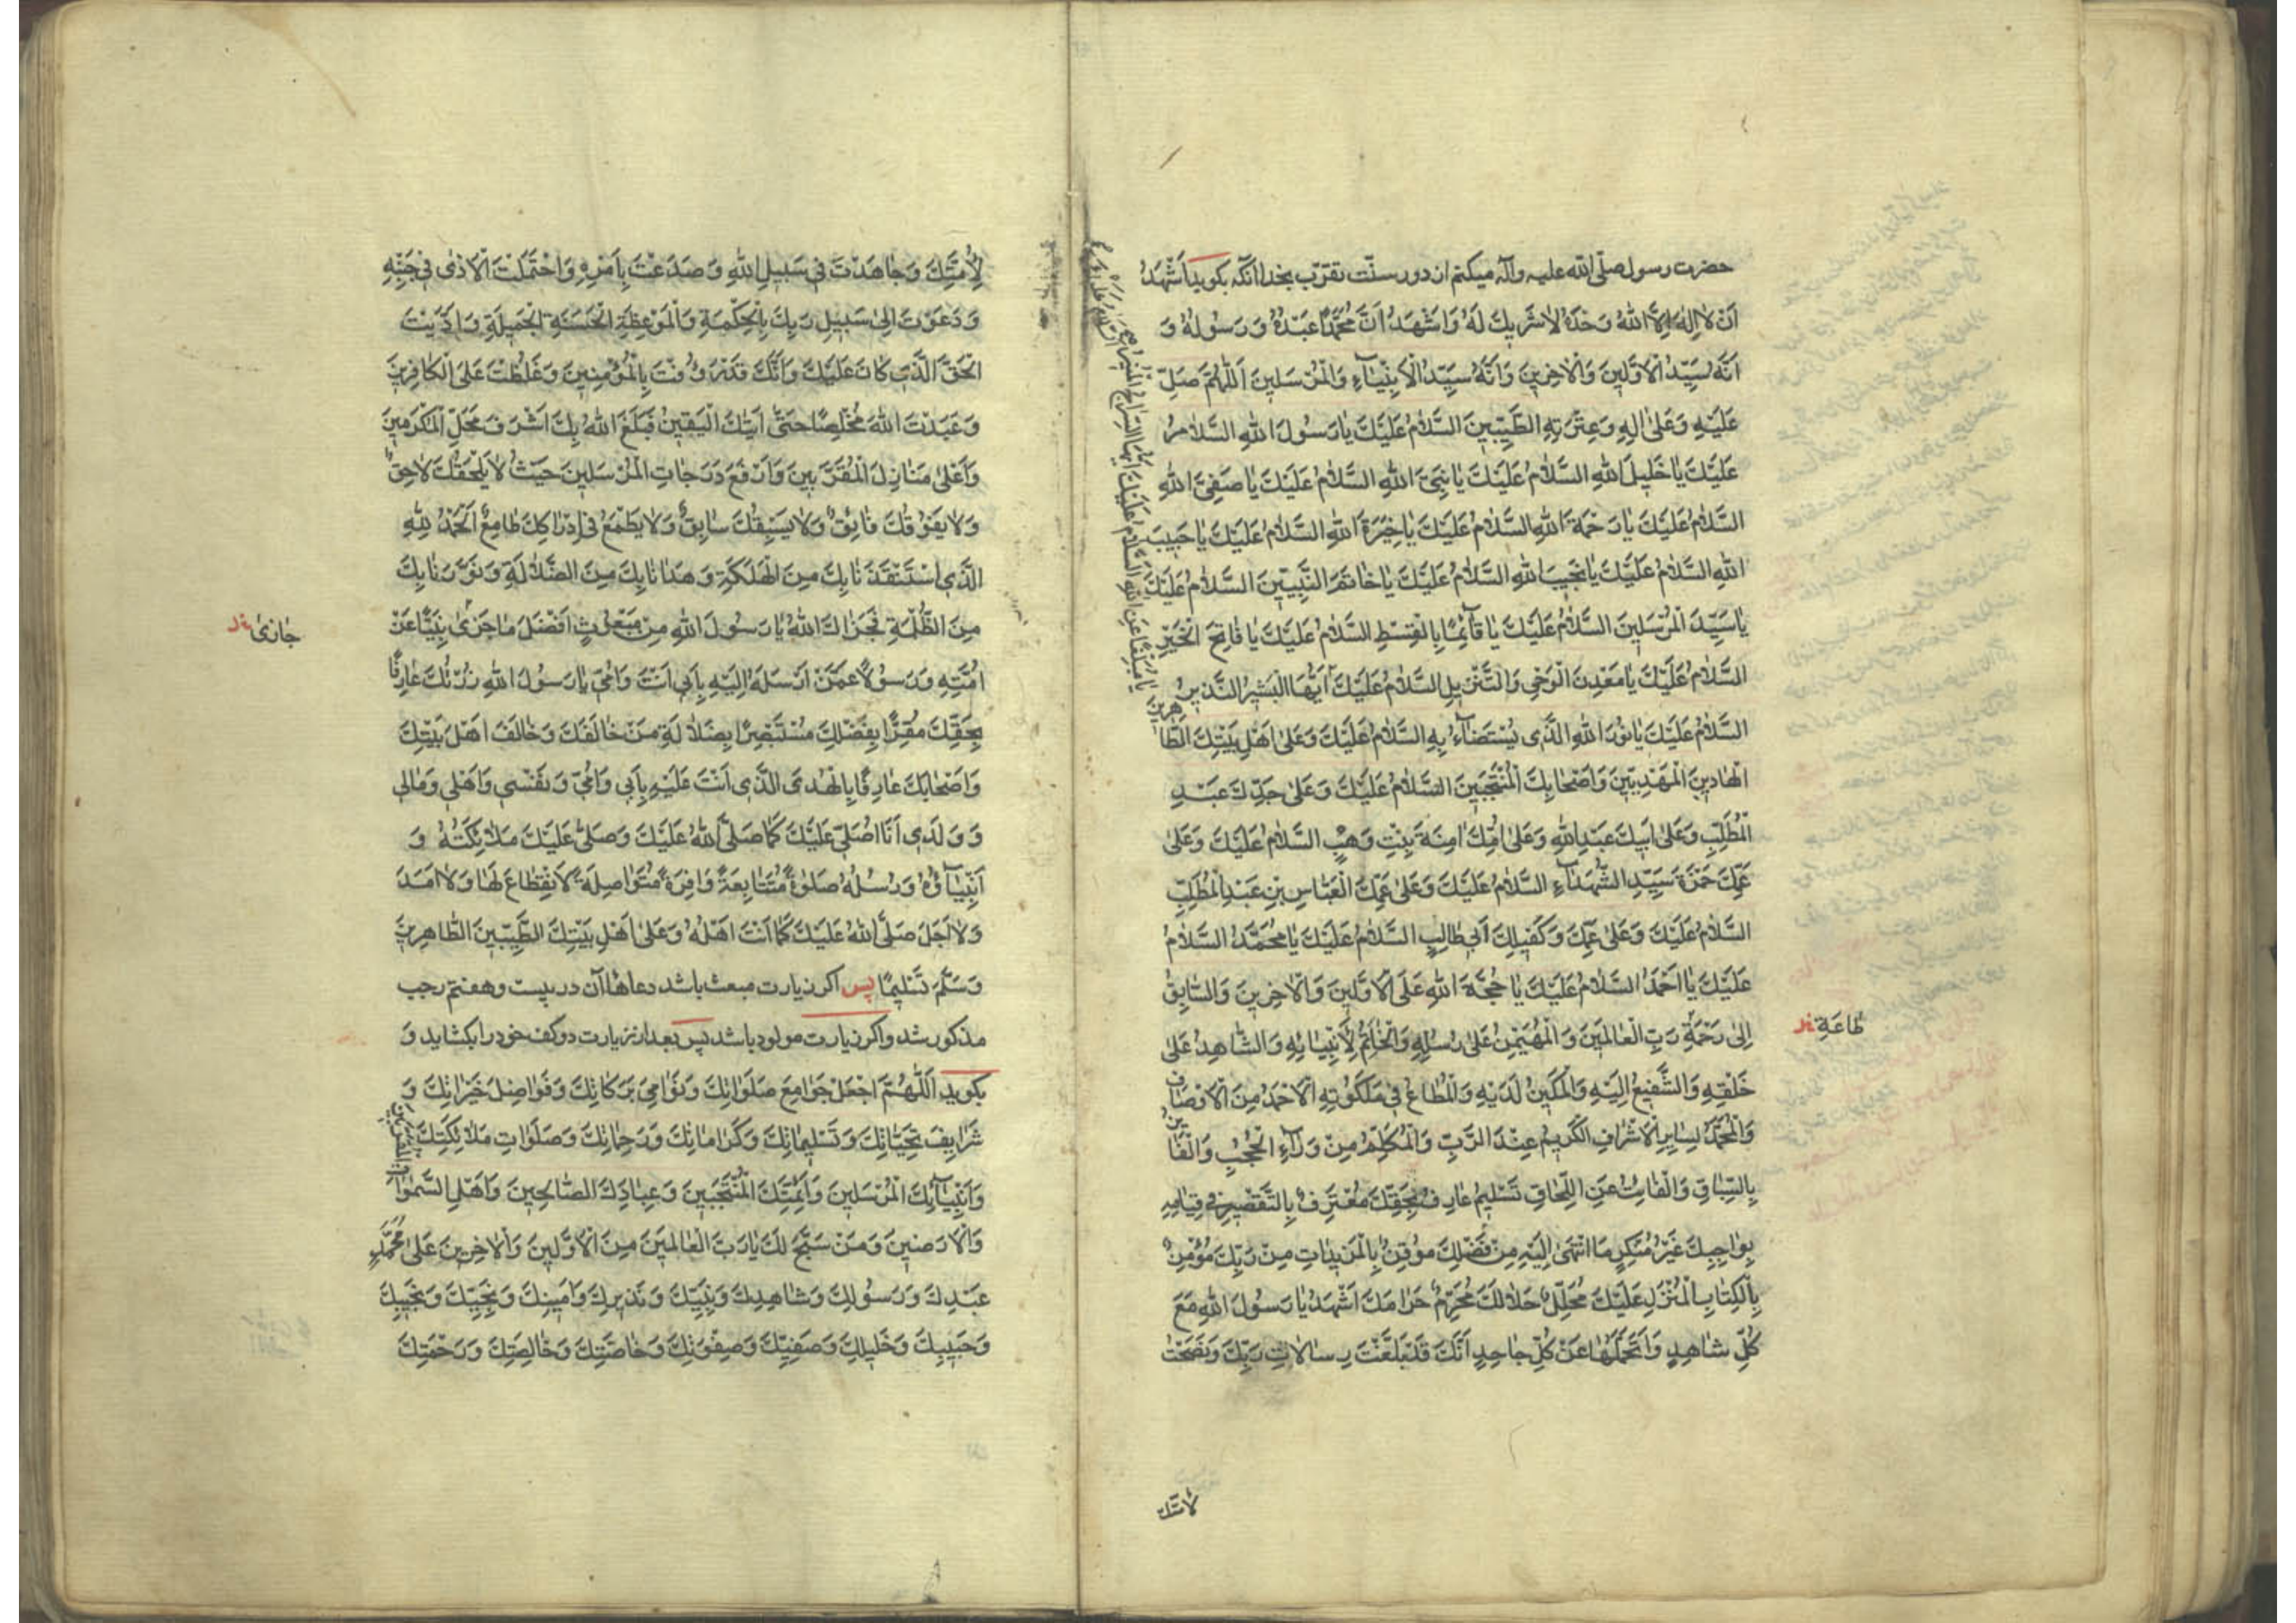 حضرت رسول صلّی الله علیه وآله میکنم از دور سنّت تقرّب بخدا آنکه بکوید اَشْهَدُ
اَنْ لاٰ اِلٰهَ اِلاَّ اللهُ وَحْدَهُ لاٰ شَرِيكَ لَهُ وَاَشْهَدُ اَنَّ مُحَمَّدًا عَبْدُهُ وَرَسُولُهُ وَ
اَنَّهُ سَيِّدُ الْاَوَّلِينَ وَالْاٰخِرِينَ وَاَنَّهُ سَيِّدُ الْاَنْبِيٰٓاءِ وَالْمُرْسَلِينَ اَللّٰهُمَّ صَلِّ
عَلَيْهِ وَعَلىٰ اٰلِهِ وَعِتْرَتِهِ الطَّيِّبِينَ السَّلاٰمُ عَلَيْكَ يٰا رَسُولَ اللهِ السَّلاٰمُ
عَلَيْكَ يٰا خَلِيلَ اللهِ السَّلاٰمُ عَلَيْكَ يٰا نَبِيَّ اللهِ السَّلاٰمُ عَلَيْكَ يٰا صَفِيَّ اللهِ
السَّلاٰمُ عَلَيْكَ يٰا رَحْمَةَ اللهِ السَّلاٰمُ عَلَيْكَ يٰا خِيَرَةَ اللهِ السَّلاٰمُ عَلَيْكَ يٰا حَبِيبَ
اللهِ السَّلاٰمُ عَلَيْكَ يٰا نَجِيبَ اللهِ السَّلاٰمُ عَلَيْكَ يٰا خٰاتَمَ النَّبِيِّينَ السَّلاٰمُ عَلَيْكَ
يٰا سَيِّدَ الْمُرْسَلِينَ السَّلاٰمُ عَلَيْكَ يٰا قٰآئِمًا بِالْقِسْطِ السَّلاٰمُ عَلَيْكَ يٰا فٰاتِحَ الْخَيْرِ
السَّلاٰمُ عَلَيْكَ يٰا مَعْدِنَ الْوَحْيِ وَالتَّنْزِيلِ السَّلاٰمُ عَلَيْكَ يٰا مُبَلِّغًا عَنِ اللهِ السَّلاٰمُ عَلَيْكَ اَيُّهَا السِّرٰاجُ الْمُنِيرُ السَّلاٰمُ عَلَيْكَ اَيُّهَا الْبَشِيرُ النَّذِيرُ
السَّلاٰمُ عَلَيْكَ يٰا نُورَ اللهِ الَّذِي يُسْتَضٰآءُ بِهِ السَّلاٰمُ عَلَيْكَ وَعَلىٰ اَهْلِ بَيْتِكَ الطّٰاهِرِينَ
الْهٰادِينَ الْمَهْدِيِّينَ وَاَصْحٰابِكَ الْمُنْتَجَبِينَ السَّلاٰمُ عَلَيْكَ وَعَلىٰ جَدِّكَ عَبْدِ
الْمُطَّلِبِ وَعَلىٰ اَبِيكَ عَبْدِ اللهِ وَعَلىٰ اُمِّكَ اٰمِنَةَ بِنْتِ وَهْبٍ السَّلاٰمُ عَلَيْكَ وَعَلىٰ
عَمِّكَ حَمْزَةَ سَيِّدِ الشُّهَدٰآءِ السَّلاٰمُ عَلَيْكَ وَعَلىٰ عَمِّكَ الْعَبّٰاسِ بْنِ عَبْدِ الْمُطَّلِبِ
السَّلاٰمُ عَلَيْكَ وَعَلىٰ عَمِّكَ وَكَفِيلِكَ اَبِي طٰالِبٍ السَّلاٰمُ عَلَيْكَ يٰا مُحَمَّدُ السَّلاٰمُ
عَلَيْكَ يٰا اَحْمَدُ السَّلاٰمُ عَلَيْكَ يٰا حُجَّةَ اللهِ عَلَى الْاَوَّلِينَ وَالْاٰخِرِينَ وَالسّٰابِقُ
اِلىٰ رَحْمَةِ رَبِّ الْعٰالَمِينَ وَالْمُهَيْمِنُ عَلىٰ رُسُلِهِ وَالْخٰاتِمُ لِأَنْبِيٰائِهِ وَالشّٰاهِدُ عَلىٰ
طٰاعَةِ خـ
خَلْقِهِ وَالشَّفِيعُ اِلَيْهِ وَالْمَكِينُ لَدَيْهِ وَالْمُطٰاعُ فِي مَلَكُوتِهِ الْاَحْمَدُ مِنَ الْاَوْصٰافِ
وَالْمُحَمَّدُ لِسٰايِرِ الْاَشْرٰافِ الْكَرِيمُ عِنْدَ الرَّبِّ وَالْمُكَلَّمُ مِنْ وَرٰآءِ الْحُجُبِ وَالْفٰائِزُ
بِالسِّبٰاقِ وَالْفٰائِتُ عَنِ اللِّحٰاقِ تَسْلِيمَ عٰارِفٍ بِحَقِّكَ مُعْتَرِفٍ بِالتَّقْصِيرِ فِي قِيٰامِهِ
بِوٰاجِبِكَ غَيْرِ مُنْكِرٍ مَا انْتَهىٰ اِلَيْهِ مِنْ فَضْلِكَ مُوقِنٍ بِالْمَزِيدٰاتِ مِنْ رَبِّكَ مُؤْمِنٍ
بِالْكِتٰابِ الْمُنْزَلِ عَلَيْكَ مُحَلِّلٍ حَلاٰلَكَ مُحَرِّمٍ حَرٰامَكَ اَشْهَدُ يٰا رَسُولَ اللهِ مَعَ
كُلِّ شٰاهِدٍ وَاَتَحَمَّلُهٰا عَنْ كُلِّ جٰاحِدٍ اَنَّكَ قَدْ بَلَّغْتَ رِسٰالاٰتِ رَبِّكَ وَنَصَحْتَ
لاُمّتك
لِاُمَّتِكَ وَجٰاهَدْتَ فِي سَبِيلِ اللهِ وَصَدَعْتَ بِاَمْرِهِ وَاحْتَمَلْتَ الْاَذىٰ فِي جَنْبِهِ
وَدَعَوْتَ اِلىٰ سَبِيلِ رَبِّكَ بِالْحِكْمَةِ وَالْمَوْعِظَةِ الْحَسَنَةِ الْجَمِيلَةِ وَاَدَّيْتَ
الْحَقَّ الَّذِي كٰانَ عَلَيْكَ وَاَنَّكَ قَدْ رَؤُفْتَ بِالْمُؤْمِنِينَ وَغَلُظْتَ عَلَى الْكٰافِرِينَ
وَعَبَدْتَ اللهَ مُخْلِصًا حَتّىٰ اَتٰيكَ الْيَقِينُ فَبَلَغَ اللهُ بِكَ اَشْرَفَ مَحَلِّ الْمُكَرَّمِينَ
وَاَعْلىٰ مَنٰازِلِ الْمُقَرَّبِينَ وَاَرْفَعَ دَرَجٰاتِ الْمُرْسَلِينَ حَيْثُ لاٰ يَلْحَقُكَ لاٰحِقٌ
وَلاٰ يَفُوقُكَ فٰائِقٌ وَلاٰ يَسْبِقُكَ سٰابِقٌ وَلاٰ يَطْمَعُ فِي اِدْرٰاكِكَ طٰامِعٌ اَلْحَمْدُ لِلّٰهِ
الَّذِي اسْتَنْقَذَنٰا بِكَ مِنَ الْهَلَكَةِ وَهَدٰانٰا بِكَ مِنَ الضَّلاٰلَةِ وَنَوَّرَنٰا بِكَ
مِنَ الظُّلْمَةِ فَجَزٰاكَ اللهُ يٰا رَسُولَ اللهِ مِنْ مَبْعُوثٍ اَفْضَلَ مٰا جَزىٰ نَبِيًّا عَنْ
جٰازىٰ خـ
اُمَّتِهِ وَرَسُولاً عَمَّنْ اَرْسَلَهُ اِلَيْهِ بِاَبِي اَنْتَ وَاُمِّي يٰا رَسُولَ اللهِ زُرْتُكَ عٰارِفًا
بِحَقِّكَ مُقِرًّا بِفَضْلِكَ مُسْتَبْصِرًا بِضَلاٰلَةِ مَنْ خٰالَفَكَ وَخٰالَفَ اَهْلَ بَيْتِكَ
وَاَصْحٰابَكَ عٰارِفًا بِالْهُدَى الَّذِي اَنْتَ عَلَيْهِ بِاَبِي وَاُمِّي وَنَفْسِي وَاَهْلِي وَمٰالِي
وَوَلَدِي اَنَا اُصَلِّي عَلَيْكَ كَمٰا صَلَّى اللهُ عَلَيْكَ وَصَلّىٰ عَلَيْكَ مَلاٰئِكَتُهُ وَ
اَنْبِيٰآؤُهُ وَرُسُلُهُ صَلوٰةً مُتَتٰابِعَةً وٰافِرَةً مُتَوٰاصِلَةً لاَ انْقِطٰاعَ لَهٰا وَلاٰ اَمَدَ
وَلاٰ اَجَلَ صَلَّى اللهُ عَلَيْكَ كَمٰا اَنْتَ اَهْلُهُ وَعَلىٰ اَهْلِ بَيْتِكَ الطَّيِّبِينَ الطّٰاهِرِينَ
وَسَلَّمَ تَسْلِيمًا پس اکر زیارت مبعث باشد دعاها آن در بیست وهفتم رجب
مذکور شد واکر زیارت مولود باشد پس بعد از زیارت دو کف خود را بکشاید و
بکوید اَللّٰهُمَّ اجْعَلْ جَوٰامِعَ صَلَوٰاتِكَ وَنَوٰامِيَ بَرَكٰاتِكَ وَفَوٰاضِلَ خَيْرٰاتِكَ وَ
شَرٰايِفَ تَحِيّٰاتِكَ وَتَسْلِيمٰاتِكَ وَكَرٰامٰاتِكَ وَرَحَمٰاتِكَ وَصَلَوٰاتِ مَلاٰئِكَتِكَ الْمُقَرَّبِينَ
وَاَنْبِيٰآئِكَ الْمُرْسَلِينَ وَاَئِمَّتِكَ الْمُنْتَجَبِينَ وَعِبٰادِكَ الصّٰالِحِينَ وَاَهْلِ السَّمٰوٰاتِ
وَالْاَرَضِينَ وَمَنْ سَبَّحَ لَكَ يٰا رَبَّ الْعٰالَمِينَ مِنَ الْاَوَّلِينَ وَالْاٰخِرِينَ عَلىٰ مُحَمَّدٍ
عَبْدِكَ وَرَسُولِكَ وَشٰاهِدِكَ وَنَبِيِّكَ وَنَذِيرِكَ وَاَمِينِكَ وَنَجِيِّكَ وَنَجِيبِكَ
وَحَبِيبِكَ وَخَلِيلِكَ وَصَفِيِّكَ وَصِفْوَتِكَ وَخٰاصَّتِكَ وَخٰالِصَتِكَ وَرَحْمَتِكَ